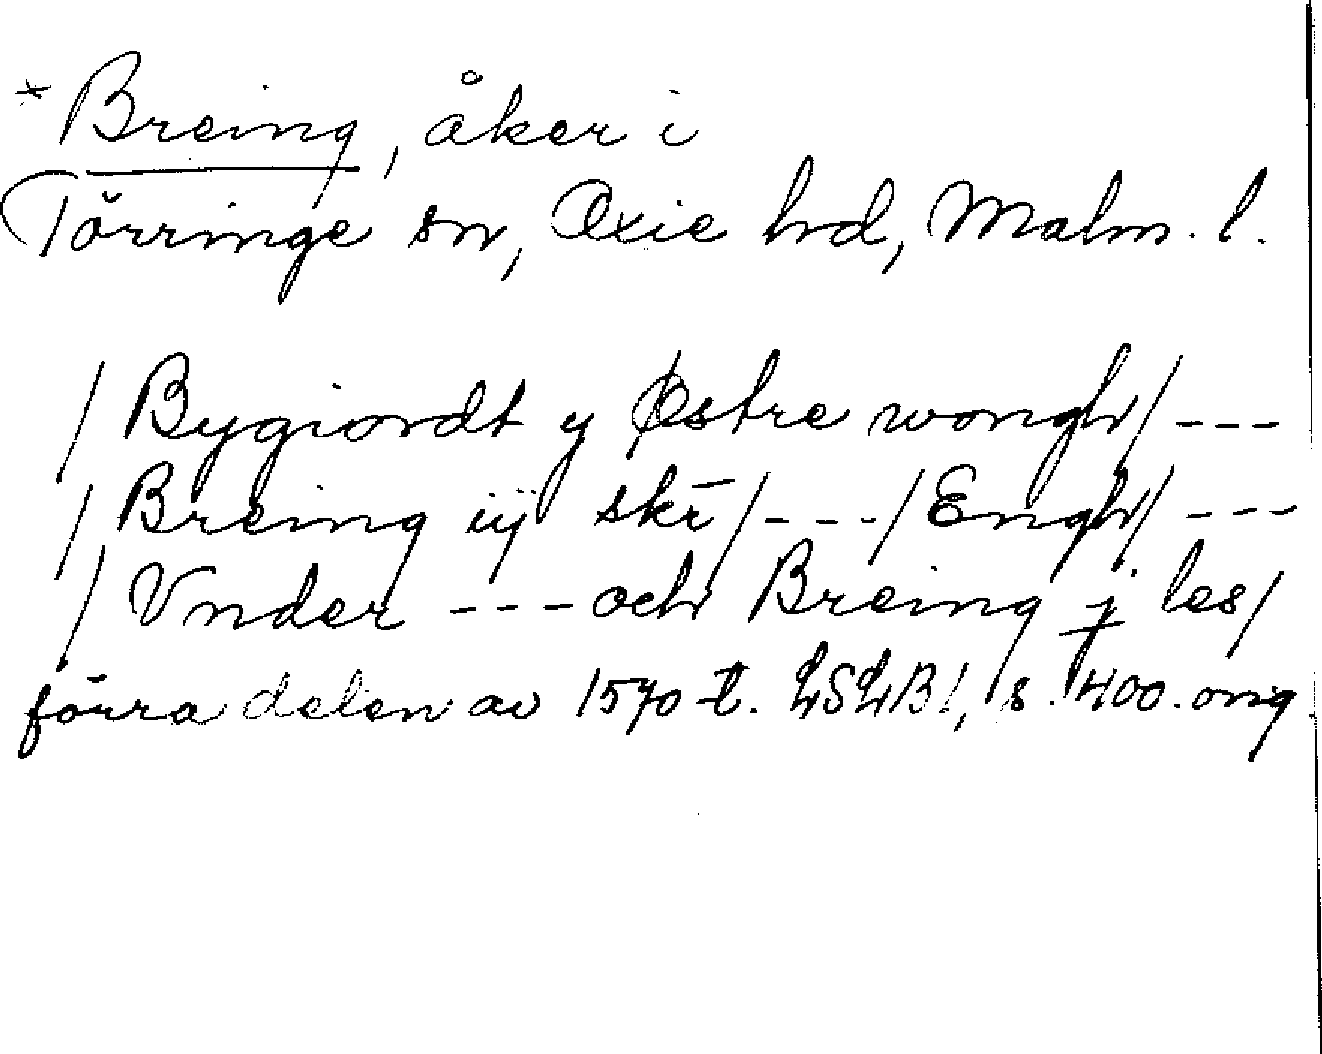 * Breing, åker i
Törringe sn, Oxie hd, Malm. l.
/ Bygiordt y Østre wongh / ---
/ Breing iij skr̄ / --- / Engh / ---
/ Vnder --- och Breing j les /
förra delen av 1570-t. LSLB1, s. 400. orig.